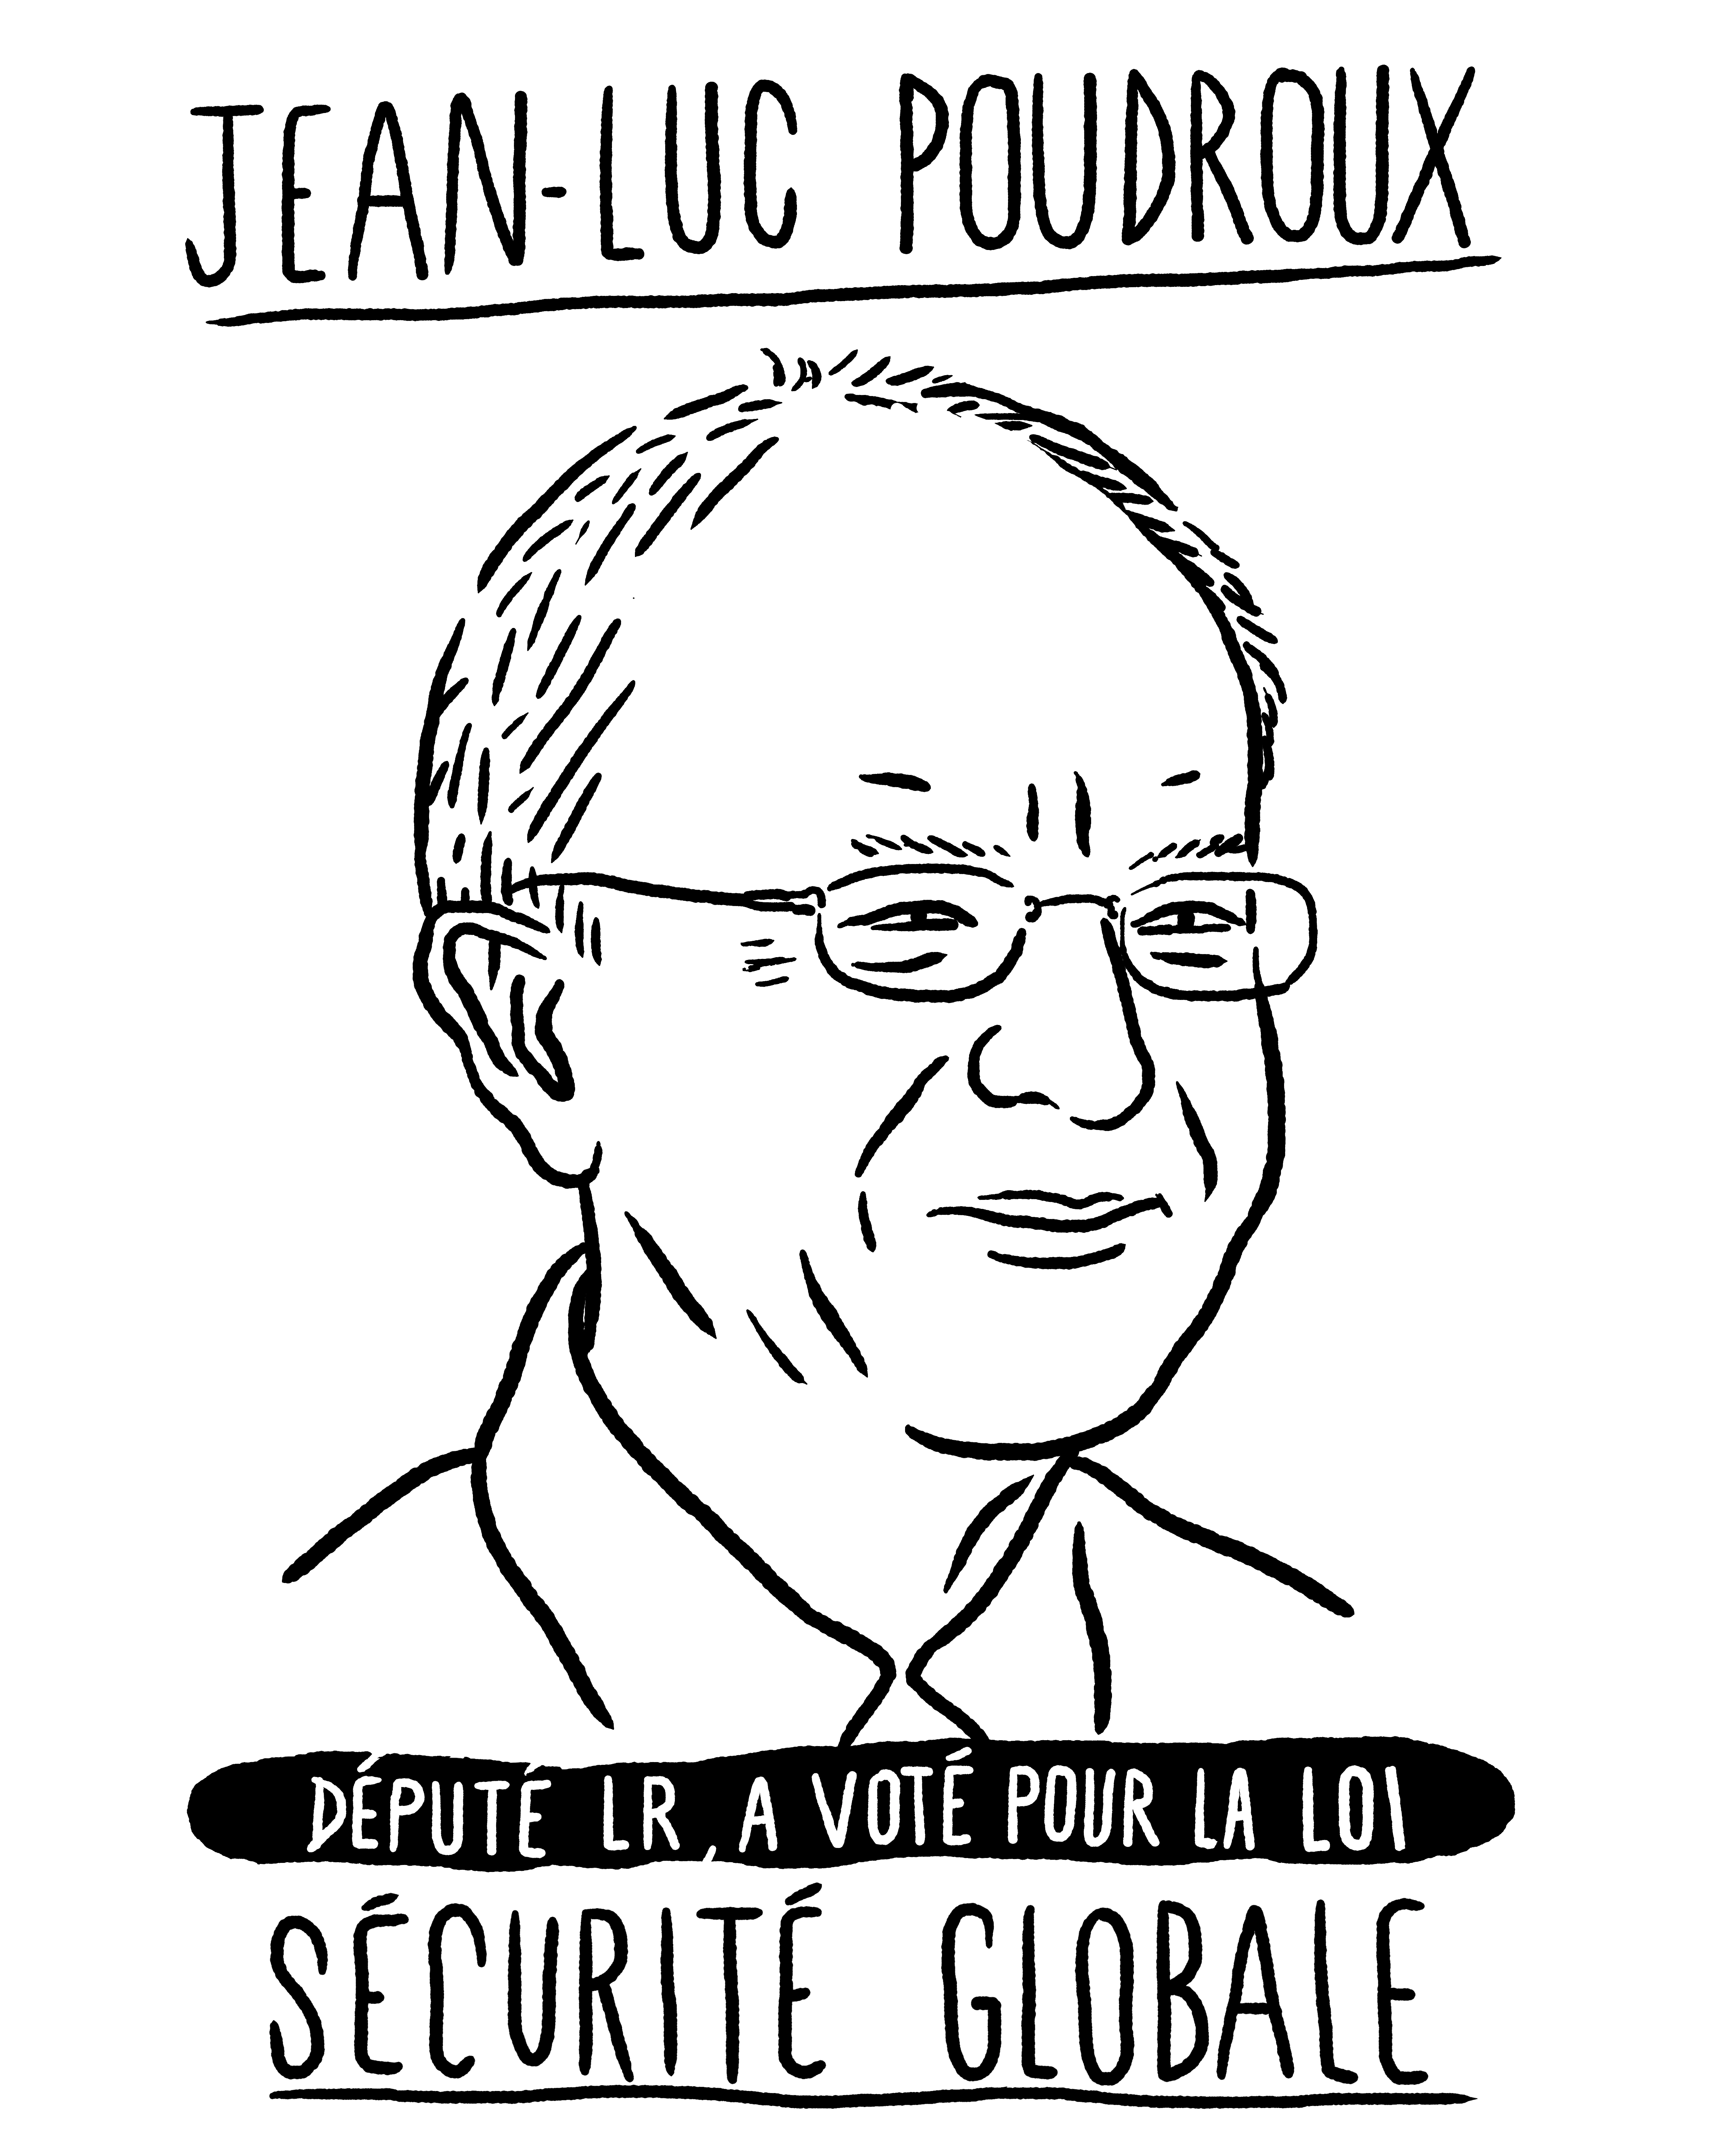 JEAN-LUC POUDROUX
DÉPUTÉ LR, A VOTÉ POUR LA LOI
SÉCURITÉ GLOBALE